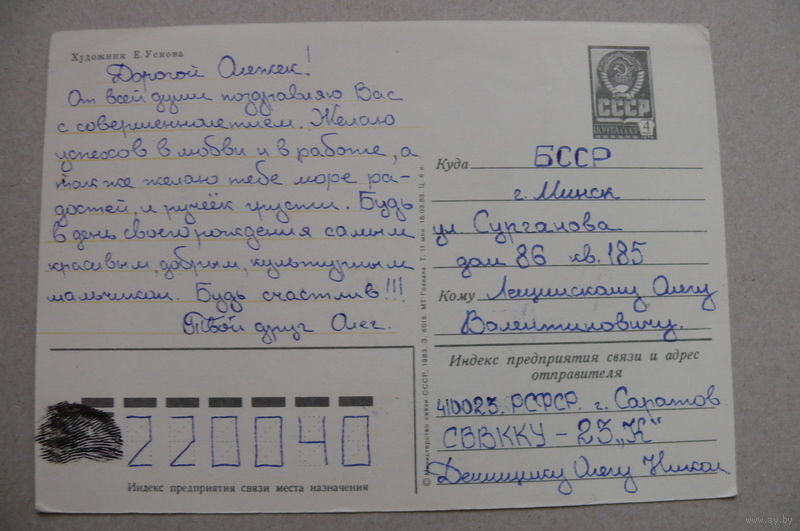 Художник Е. Ускова
Дорогой Олежек!
От всей души поздравляю Вас
с совершеннолетием. Желаю
успехов в любви и в работе, а
так же желаю тебе море ра-
достей, и ручеёк грусти. Будь
в день своего рождения самым
красивым, добрым, культурным
мальчиком. Будь счастлив!!!
Твой друг Олег.
220040
Индекс предприятия связи места назначения
© Министерство связи СССР, 1983. З. МТ Гознака. 18.03.83. Ц. 6 к.
СССР
ПОЧТА СССР
4
Куда БССР
г. Минск
ул. Сурганова
дом 86 кв. 185
Кому Лещинскому Олегу
Валентиновичу.
Индекс предприятия связи и адрес
отправителя
410023. РСФСР. г. Саратов
СВВККУ – 23 „К“
Олегу Никол
www.ay.by